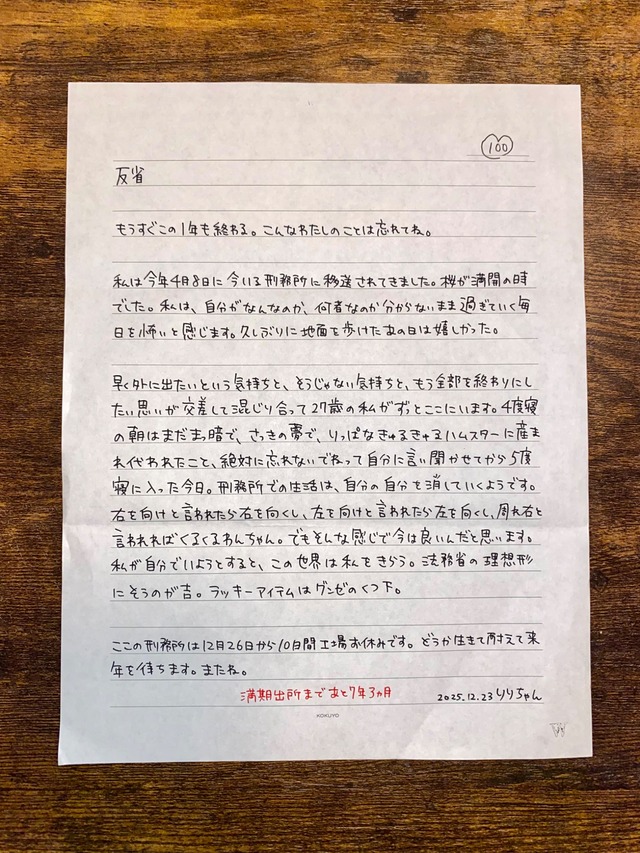 100
反省
もうすぐこの1年も終わる。こんなわたしのことは忘れてね。
私は今年4月8日に今いる刑務所に移送されてきました。桜が満開の時
でした。私は、自分がなんなのか、何者なのか分からないまま過ぎていく毎
日を怖いと感じます。久しぶりに地面を歩けたあの日は嬉しかった。
早く外に出たいという気持ちと、そうじゃない気持ちと、もう全部を終わりにし
たい思いが交差して混じり合って27歳の私がずとここにいます。4度寝
の朝はまだまっ暗で、さっきの夢で、りっぱなきゅるきゅるハムスターに産ま
れ代われたこと、絶対に忘れないでねって自分に言い聞かせてから5度
寝に入った今日。刑務所での生活は、自分の自分を消していくようです。
右を向けと言われたら右を向くし、左を向けと言われたら左を向くし、周れ右と
言われればくるくるわんちゃん。でもそんな感じで今は良いんだと思います。
私が自分でいようとすると、この世界は私をきらう。法務省の理想形
にそうのが吉。ラッキーアイテムはグンゼのくつ下。
ここの刑務所は12月26日から10日間工場お休みです。どうか生きて耐えて来
年を待ちます。またね。
満期出所まであと7年3ヵ月
2025.12.23りりちゃん
KOKUYO